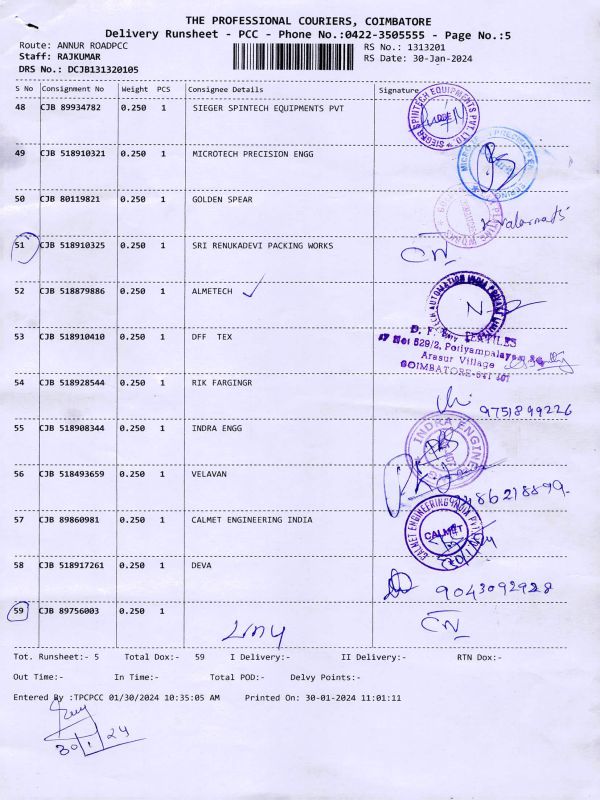 THE PROFESSIONAL COURIERS, COIMBATORE
Delivery Runsheet - PCC - Phone No.:0422-3505555 - Page No.:5
Route: ANNUR ROADPCC RS No.: 1313201
Staff: RAJKUMAR RS Date: 30-Jan-2024
DRS No.: DCJB131320105
S No Consignment No Weight PCS Consignee Details Signature
48 CJB 89934782 0.250 1 SIEGER SPINTECH EQUIPMENTS PVT
SIEGER SPINTECH EQUIPMENTS PVT. LTD
49 CJB 518910321 0.250 1 MICROTECH PRECISION ENGG
50 CJB 80119821 0.250 1 GOLDEN SPEAR
51 CJB 518910325 0.250 1 SRI RENUKADEVI PACKING WORKS
52 CJB 518879886 0.250 1 ALMETECH
53 CJB 518910410 0.250 1 DFF TEX
Arasur Village
COIMBATORE-641 407
54 CJB 518928544 0.250 1 RIK FARGINGR
9751899226
55 CJB 518908344 0.250 1 INDRA ENGG
INDRA ENGINE
56 CJB 518493659 0.250 1 VELAVAN
57 CJB 89860981 0.250 1 CALMET ENGINEERING INDIA
CALMET ENGINEERING INDIA
CALMET
58 CJB 518917261 0.250 1 DEVA
9043092928
59 CJB 89756003 0.250 1
Tot. Runsheet:- 5 Total Dox:- 59 I Delivery:- II Delivery:- RTN Dox:-
Out Time:- In Time:- Total POD:- Delvy Points:-
Entered By :TPCPCC 01/30/2024 10:35:05 AM Printed On: 30-01-2024 11:01:11
30/1/24